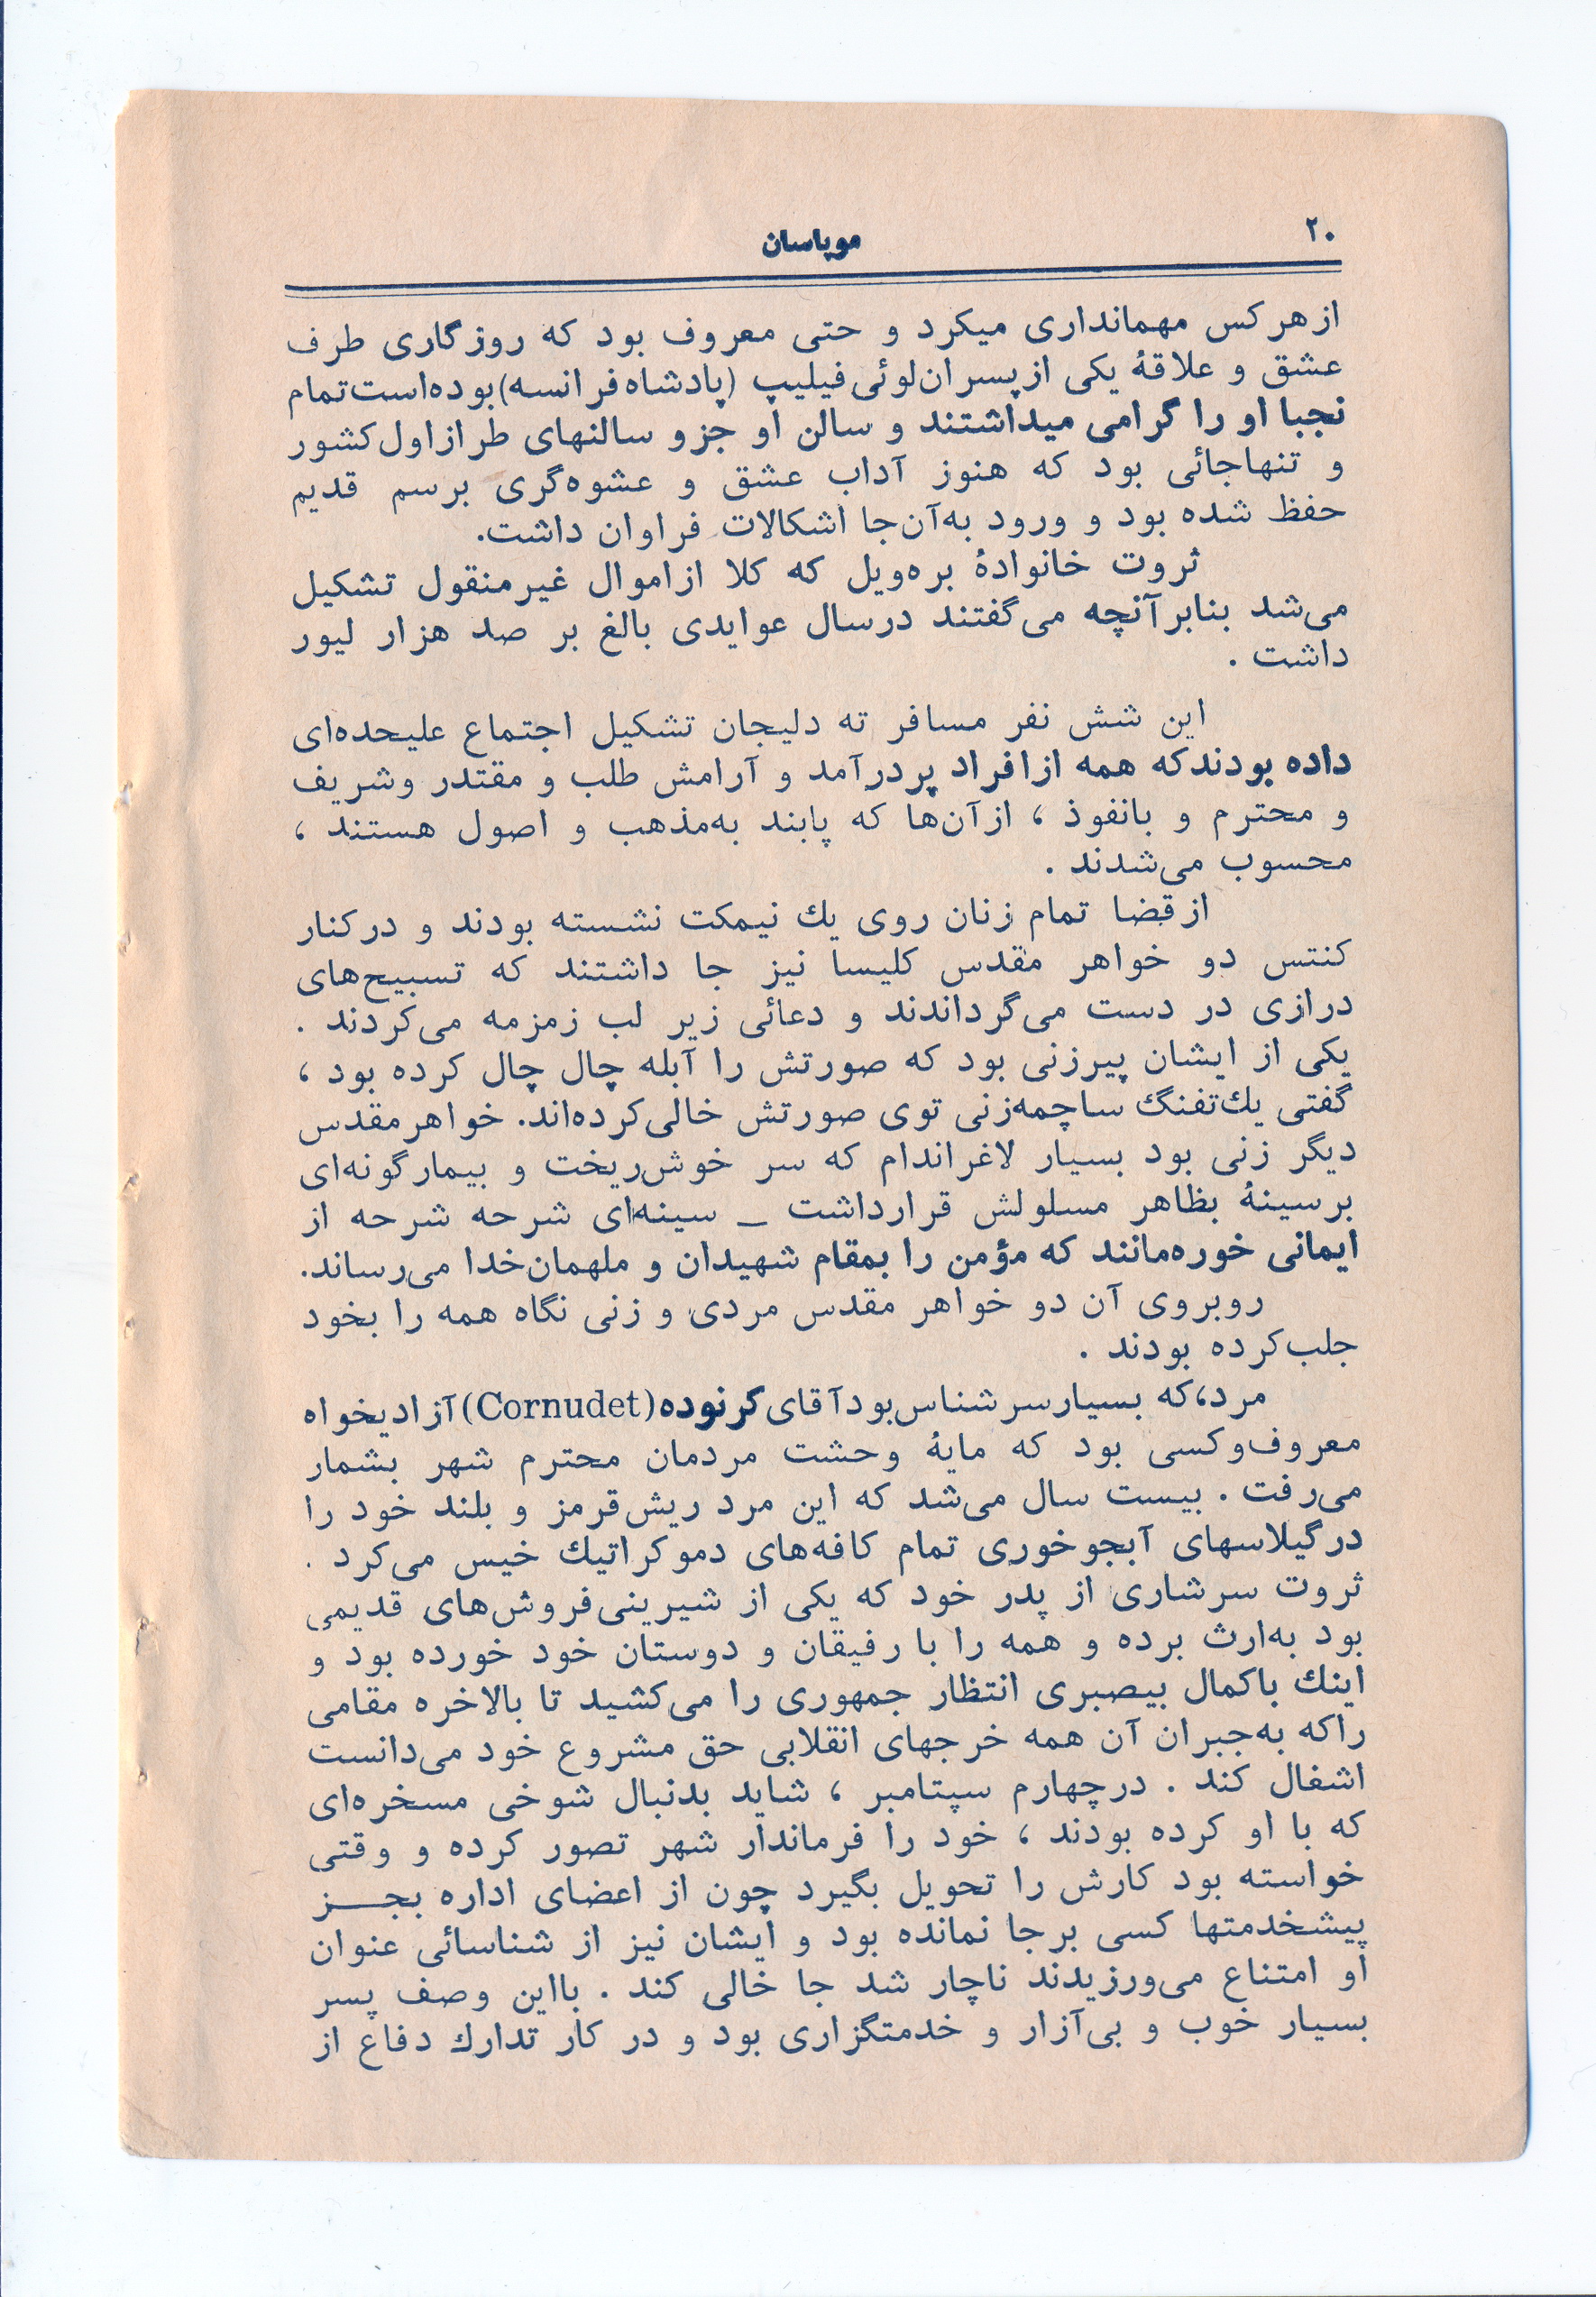 ۲۰
موپاسان
از هر کس مهمانداری میکرد و حتی معروف بود که روزگاری طرف
عشق و علاقهٔ یکی از پسران لوئی فیلیپ (پادشاه فرانسه) بوده است تمام
نجبا او را گرامی میداشتند و سالن او جزو سالنهای طراز اول کشور
و تنها جائی بود که هنوز آداب عشق و عشوه‌گری برسم قدیم
حفظ شده بود و ورود به‌آن‌جا اشکالات فراوان داشت.
ثروت خانوادهٔ بره‌ویل که کلا از اموال غیر منقول تشکیل
می‌شد بنابر آنچه می‌گفتند در سال عوایدی بالغ بر صد هزار لیور
داشت .
این شش نفر مسافر ته دلیجان تشکیل اجتماع علیحده‌ای
داده بودند که همه از افراد پر درآمد و آرامش طلب و مقتدر و شریف
و محترم و بانفوذ ، از آن‌ها که پابند به‌مذهب و اصول هستند ،
محسوب می‌شدند .
از قضا تمام زنان روی یك نیمکت نشسته بودند و در کنار
کنتس دو خواهر مقدس کلیسا نیز جا داشتند که تسبیح‌های
درازی در دست می‌گرداندند و دعائی زیر لب زمزمه می‌کردند .
یکی از ایشان پیرزنی بود که صورتش را آبله چال چال کرده بود ،
گفتی یك تفنگ ساچمه‌زنی توی صورتش خالی کرده‌اند. خواهر مقدس
دیگر زنی بود بسیار لاغر اندام که سر خوش‌ریخت و بیمار گونه‌ای
بر سینهٔ بظاهر مسلولش قرار داشت _ سینه‌ای شرحه شرحه از
ایمانی خوره‌مانند که مؤمن را بمقام شهیدان و ملهمان خدا می‌رساند.
روبروی آن دو خواهر مقدس مردی و زنی نگاه همه را بخود
جلب کرده بودند .
مرد، که بسیار سرشناس بود آقای کرنوده (Cornudet) آزادیخواه
معروف و کسی بود که مایهٔ وحشت مردمان محترم شهر بشمار
می‌رفت . بیست سال می‌شد که این مرد ریش قرمز و بلند خود را
در گیلاسهای آبجو خوری تمام کافه‌های دموکراتیك خیس می‌کرد .
ثروت سرشاری از پدر خود که یکی از شیرینی‌فروش‌های قدیمی
بود به‌ارث برده و همه را با رفیقان و دوستان خود خورده بود و
اینك با کمال بیصبری انتظار جمهوری را می‌کشید تا بالاخره مقامی
را که به‌جبران آن همه خرجهای انقلابی حق مشروع خود می‌دانست
اشغال کند . در چهارم سپتامبر ، شاید بدنبال شوخی مسخره‌ای
که با او کرده بودند ، خود را فرماندار شهر تصور کرده و وقتی
خواسته بود کارش را تحویل بگیرد چون از اعضای اداره بجــز
پیشخدمتها کسی بر جا نمانده بود و ایشان نیز از شناسائی عنوان
او امتناع می‌ورزیدند ناچار شد جا خالی کند . بااین وصف پسر
بسیار خوب و بی‌آزار و خدمتگزاری بود و در کار تدارك دفاع از